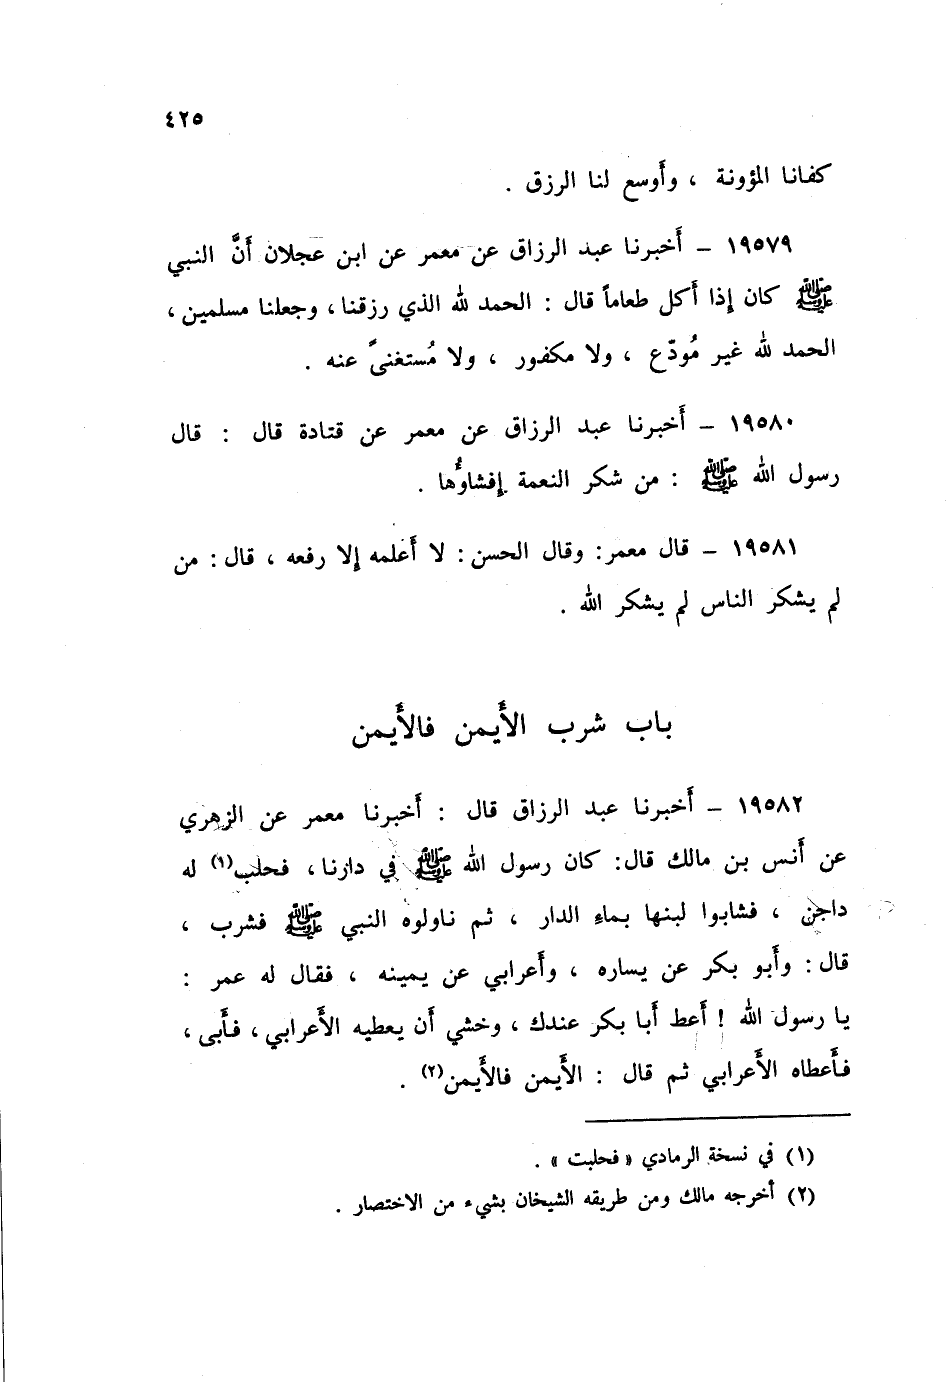 ٤٢٥
كفانا المؤونة ، وأوسع لنا الرزق .
١٩٥٧٩ – أخبرنا عبد الرزاق عن معمر عن ابن عجلان أنَّ النبي
ﷺ كان إذا أكل طعاماً قال : الحمد لله الذي رزقنا ، وجعلنا مسلمين ،
الحمد لله غير مُودّع ، ولا مكفور ، ولا مُستغنىً عنه .
١٩٥٨٠ – أخبرنا عبد الرزاق عن معمر عن قتادة قال : قال
رسول الله ﷺ : من شكر النعمة إفشاؤُها .
١٩٥٨١ – قال معمر : وقال الحسن : لا أعلمه إلا رفعه ، قال : من
لم يشكر الناس لم يشكر الله .
باب شرب الأيمن فالأيمن
١٩٥٨٢ – أخبرنا عبد الرزاق قال : أخبرنا معمر عن الزهري
عن أنس بن مالك قال : كان رسول الله ﷺ في دارنا ، فحلب(١) له
داجن ، فشابوا لبنها بماء الدار ، ثم ناولوه النبي ﷺ فشرب ،
قال : وأبو بكر عن يساره ، وأعرابي عن يمينه ، فقال له عمر :
يا رسول الله ! أعط أبا بكر عندك ، وخشي أن يعطيه الأعرابي ، فأبى ،
فأعطاه الأعرابي ثم قال : الأيمن فالأيمن(٢) .
(١) في نسخة الرمادي « فحلبت » .
(٢) أخرجه مالك ومن طريقه الشيخان بشيء من الاختصار .